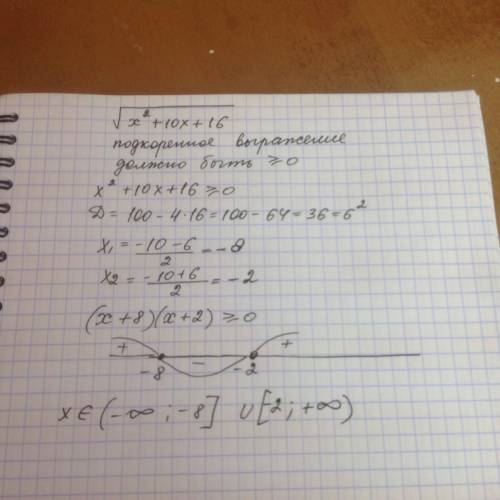 √(x² + 10x + 16)
подкоренное выражение
должно быть ≥ 0
x² + 10x + 16 ≥ 0
Д = 100 - 4·16 = 100 - 64 = 36 = 6²
x₁ = (-10 - 6)/2 = -8
x₂ = (-10 + 6)/2 = -2
(x + 8)(x + 2) ≥ 0
+ - +
-8 -2
x ∈ (-∞ ; -8] ∪ [-2 ; +∞)